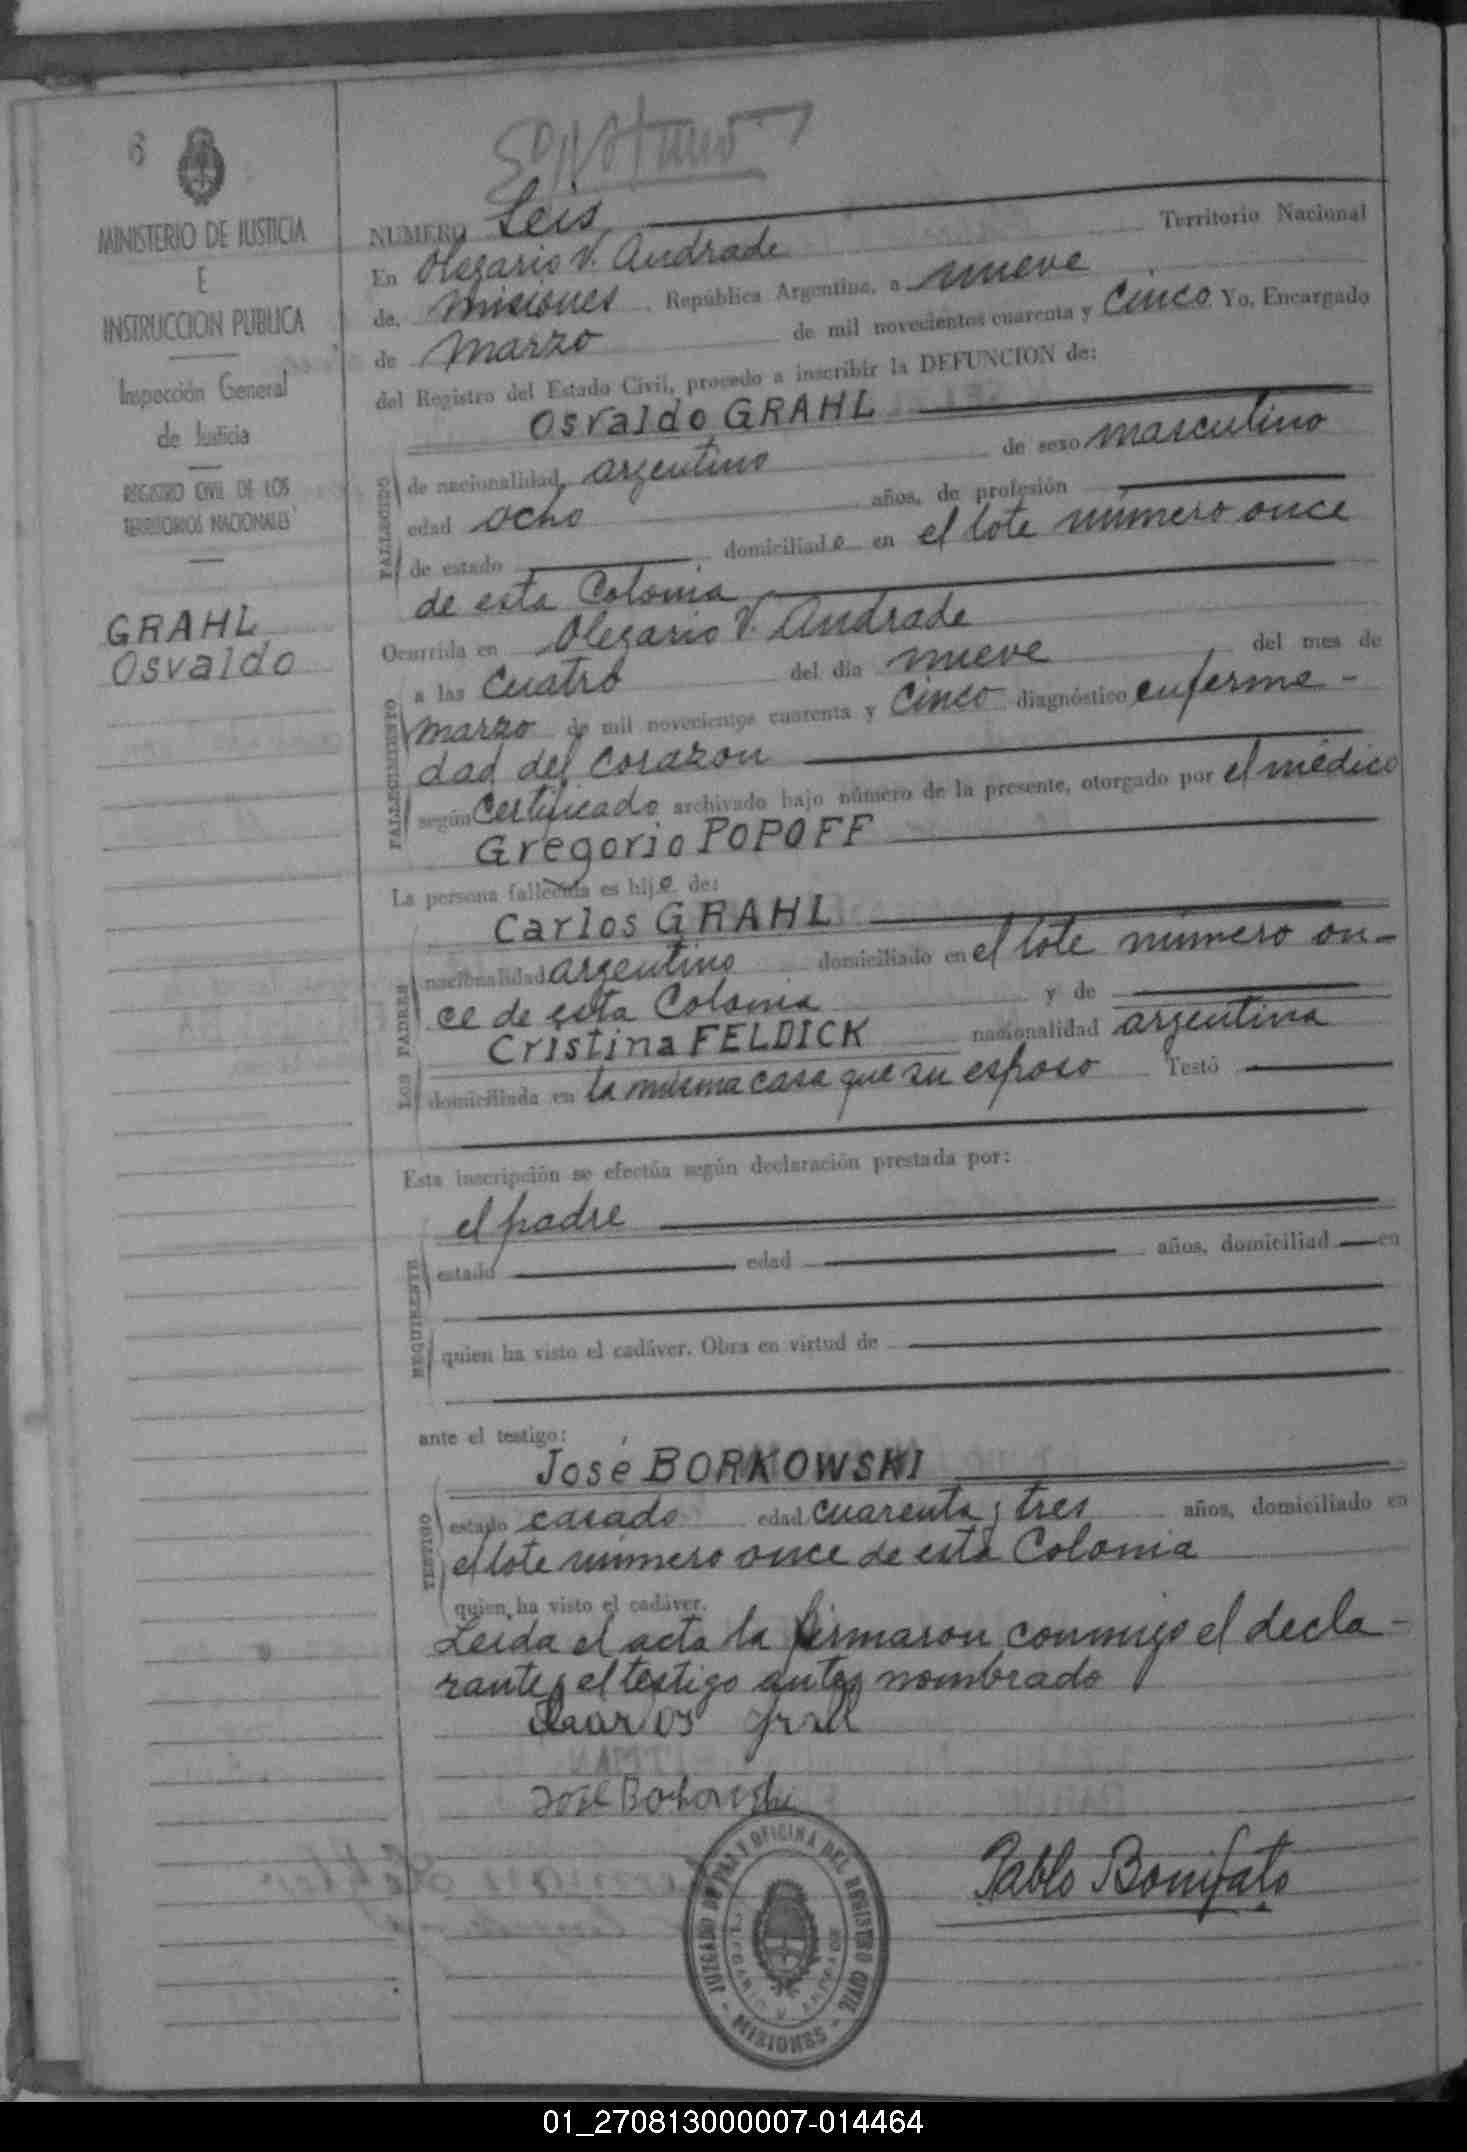 6
MINISTERIO DE JUSTICIA
E
INSTRUCCION PUBLICA
Inspección General
de Justicia
REGISTRO CIVIL DE LOS
TERRITORIOS NACIONALES
GRAHL
Osvaldo
NUMERO Seis
En Olegario V. Andrade Territorio Nacional
de, Misiones, República Argentina, a nueve
de Marzo de mil novecientos cuarenta y Cinco Yo, Encargado
del Registro del Estado Civil, procedo a inscribir la DEFUNCION de:
Osvaldo GRAHL
FALLECIDO
de nacionalidad argentino de sexo masculino
edad ocho años, de profesión
de estado domiciliado en el lote número once
de esta Colonia
Ocurrida en Olegario V. Andrade
FALLECIMIENTO
a las Cuatro del día nueve del mes de
marzo de mil novecientos cuarenta y Cinco diagnóstico enferme-
dad del Corazon
según Certificado archivado bajo número de la presente, otorgado por el médico
Gregorio POPOFF
La persona fallecida es hijo de:
Carlos GRAHL
LOS PADRES
nacionalidad argentino domiciliado en el lote número on-
ce de esta Colonia y de
Cristina FELDICK nacionalidad argentina
domiciliada en la misma casa que su esposo Testó
Esta inscripción se efectúa según declaración prestada por:
el padre
REQUIRENTE
estado edad años, domiciliad en
quien ha visto el cadáver. Obra en virtud de
ante el testigo:
José BORKOWSKI
TESTIGO
estado casado edad cuarenta y tres años, domiciliado en
el lote número once de esta Colonia
quien ha visto el cadáver.
Leida el acta la firmaron conmigo el decla-
rante y el testigo antes nombrado
José
Pablo Bonifato
JUZGADO DE PAZ Y OFICINA DEL REGISTRO CIVIL
- MISIONES -
01_270813000007-014464